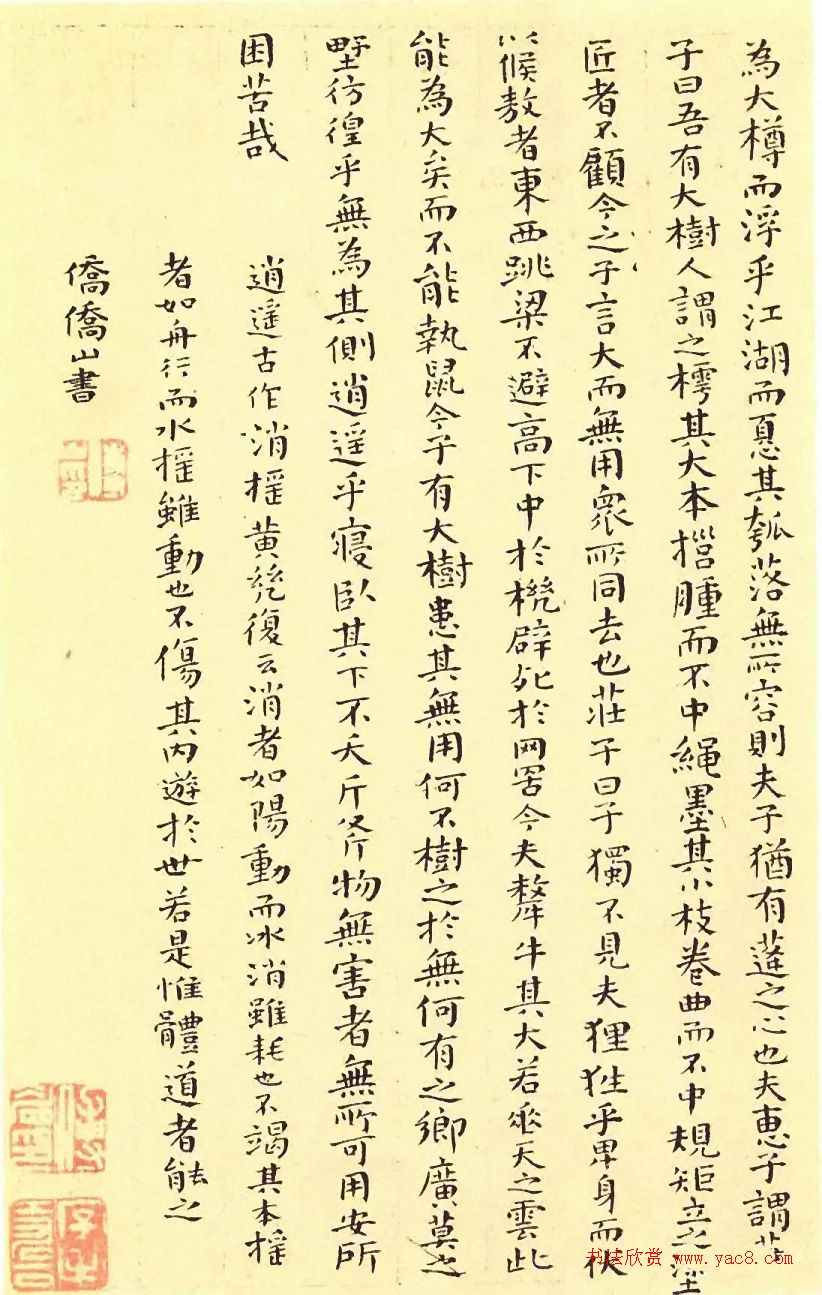 為大樽而浮乎江湖而憂其瓠落無所容則夫子猶有蓬之心也夫惠子謂莊
子曰吾有大樹人謂之樗其大本擁腫而不中繩墨其小枝卷曲而不中規矩立之塗
匠者不顧今之子言大而無用衆所同去也莊子曰子獨不見夫狸狌乎卑身而伏
以候敖者東西跳梁不避高下中於機辟死於网罟今夫犛牛其大若垂天之雲此
能為大矣而不能執鼠今子有大樹患其無用何不樹之於無何有之鄉廣莫之
埜彷徨乎無為其側逍遥乎寢卧其下不夭斤斧物無害者無所可用安所
困苦哉
逍遥古作消摇黄幾復云消者如陽動而冰消雖耗也不竭其本摇
者如舟行而水摇雖動也不傷其内遊於世若是惟體道者能之
僑僑山書
书法欣赏 www.yac8.com